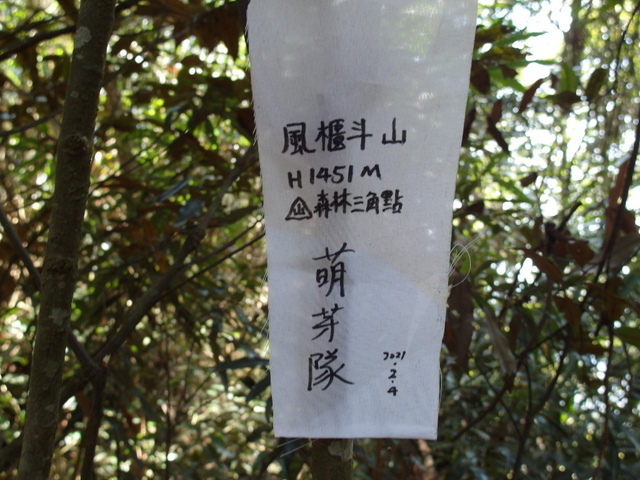 風櫃斗山
H1451M
森林三角點
萌芽隊
2021.2.4